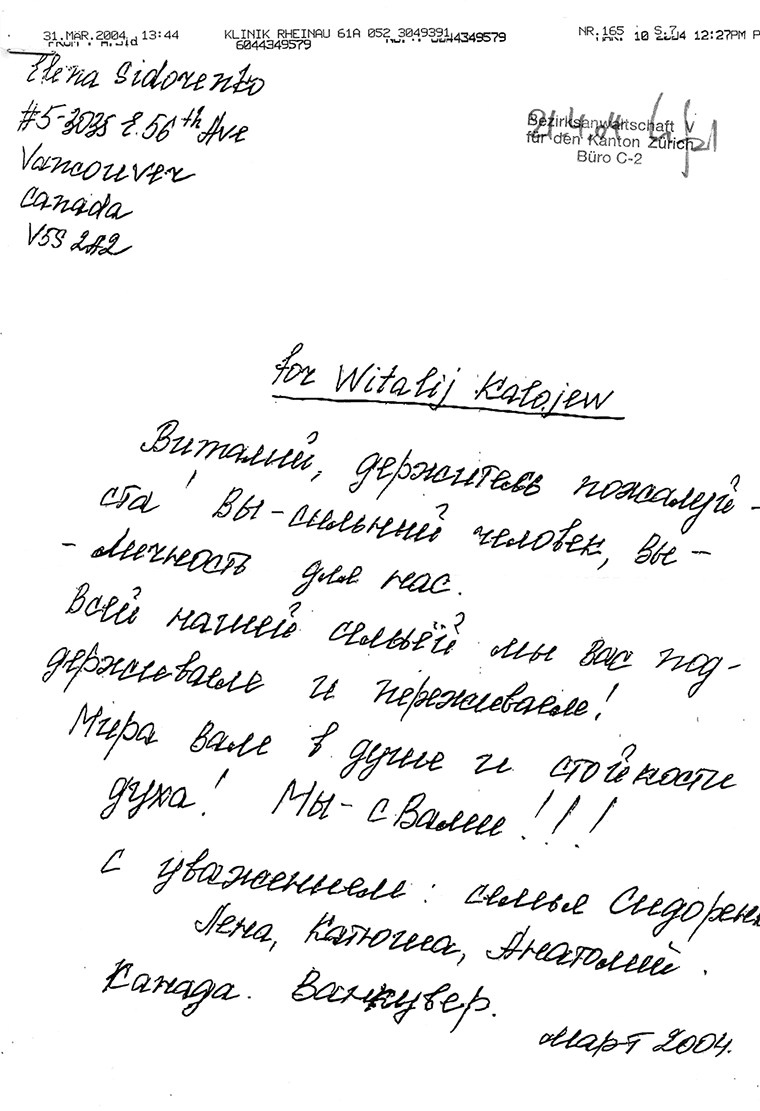 31.MAR.2004 13:44 KLINIK RHEINAU 61A 052 3049391 NR.165 S.7
6044349579 4349579 12:27PM P
Elena Sidorenko
#5-3035 E.56th Ave
Vancouver
Canada
V5S 2A2
21.4.04
Bezirksanwaltschaft V
für den Kanton Zürich
Büro C-2
for Witalij Kalojew
Виталий, держитесь пожалуй-
ста! Вы-сильный человек, Вы-
- личность для нас.
Всей нашей семьёй мы вас под-
держиваем и переживаем!
Мира вам в душе и стойкости
духа! Мы-с Вами!!!
С уважением: семья Сидорен
Лена, Катюша, Анатолий.
Канада. Ванкувер.
март 2004.